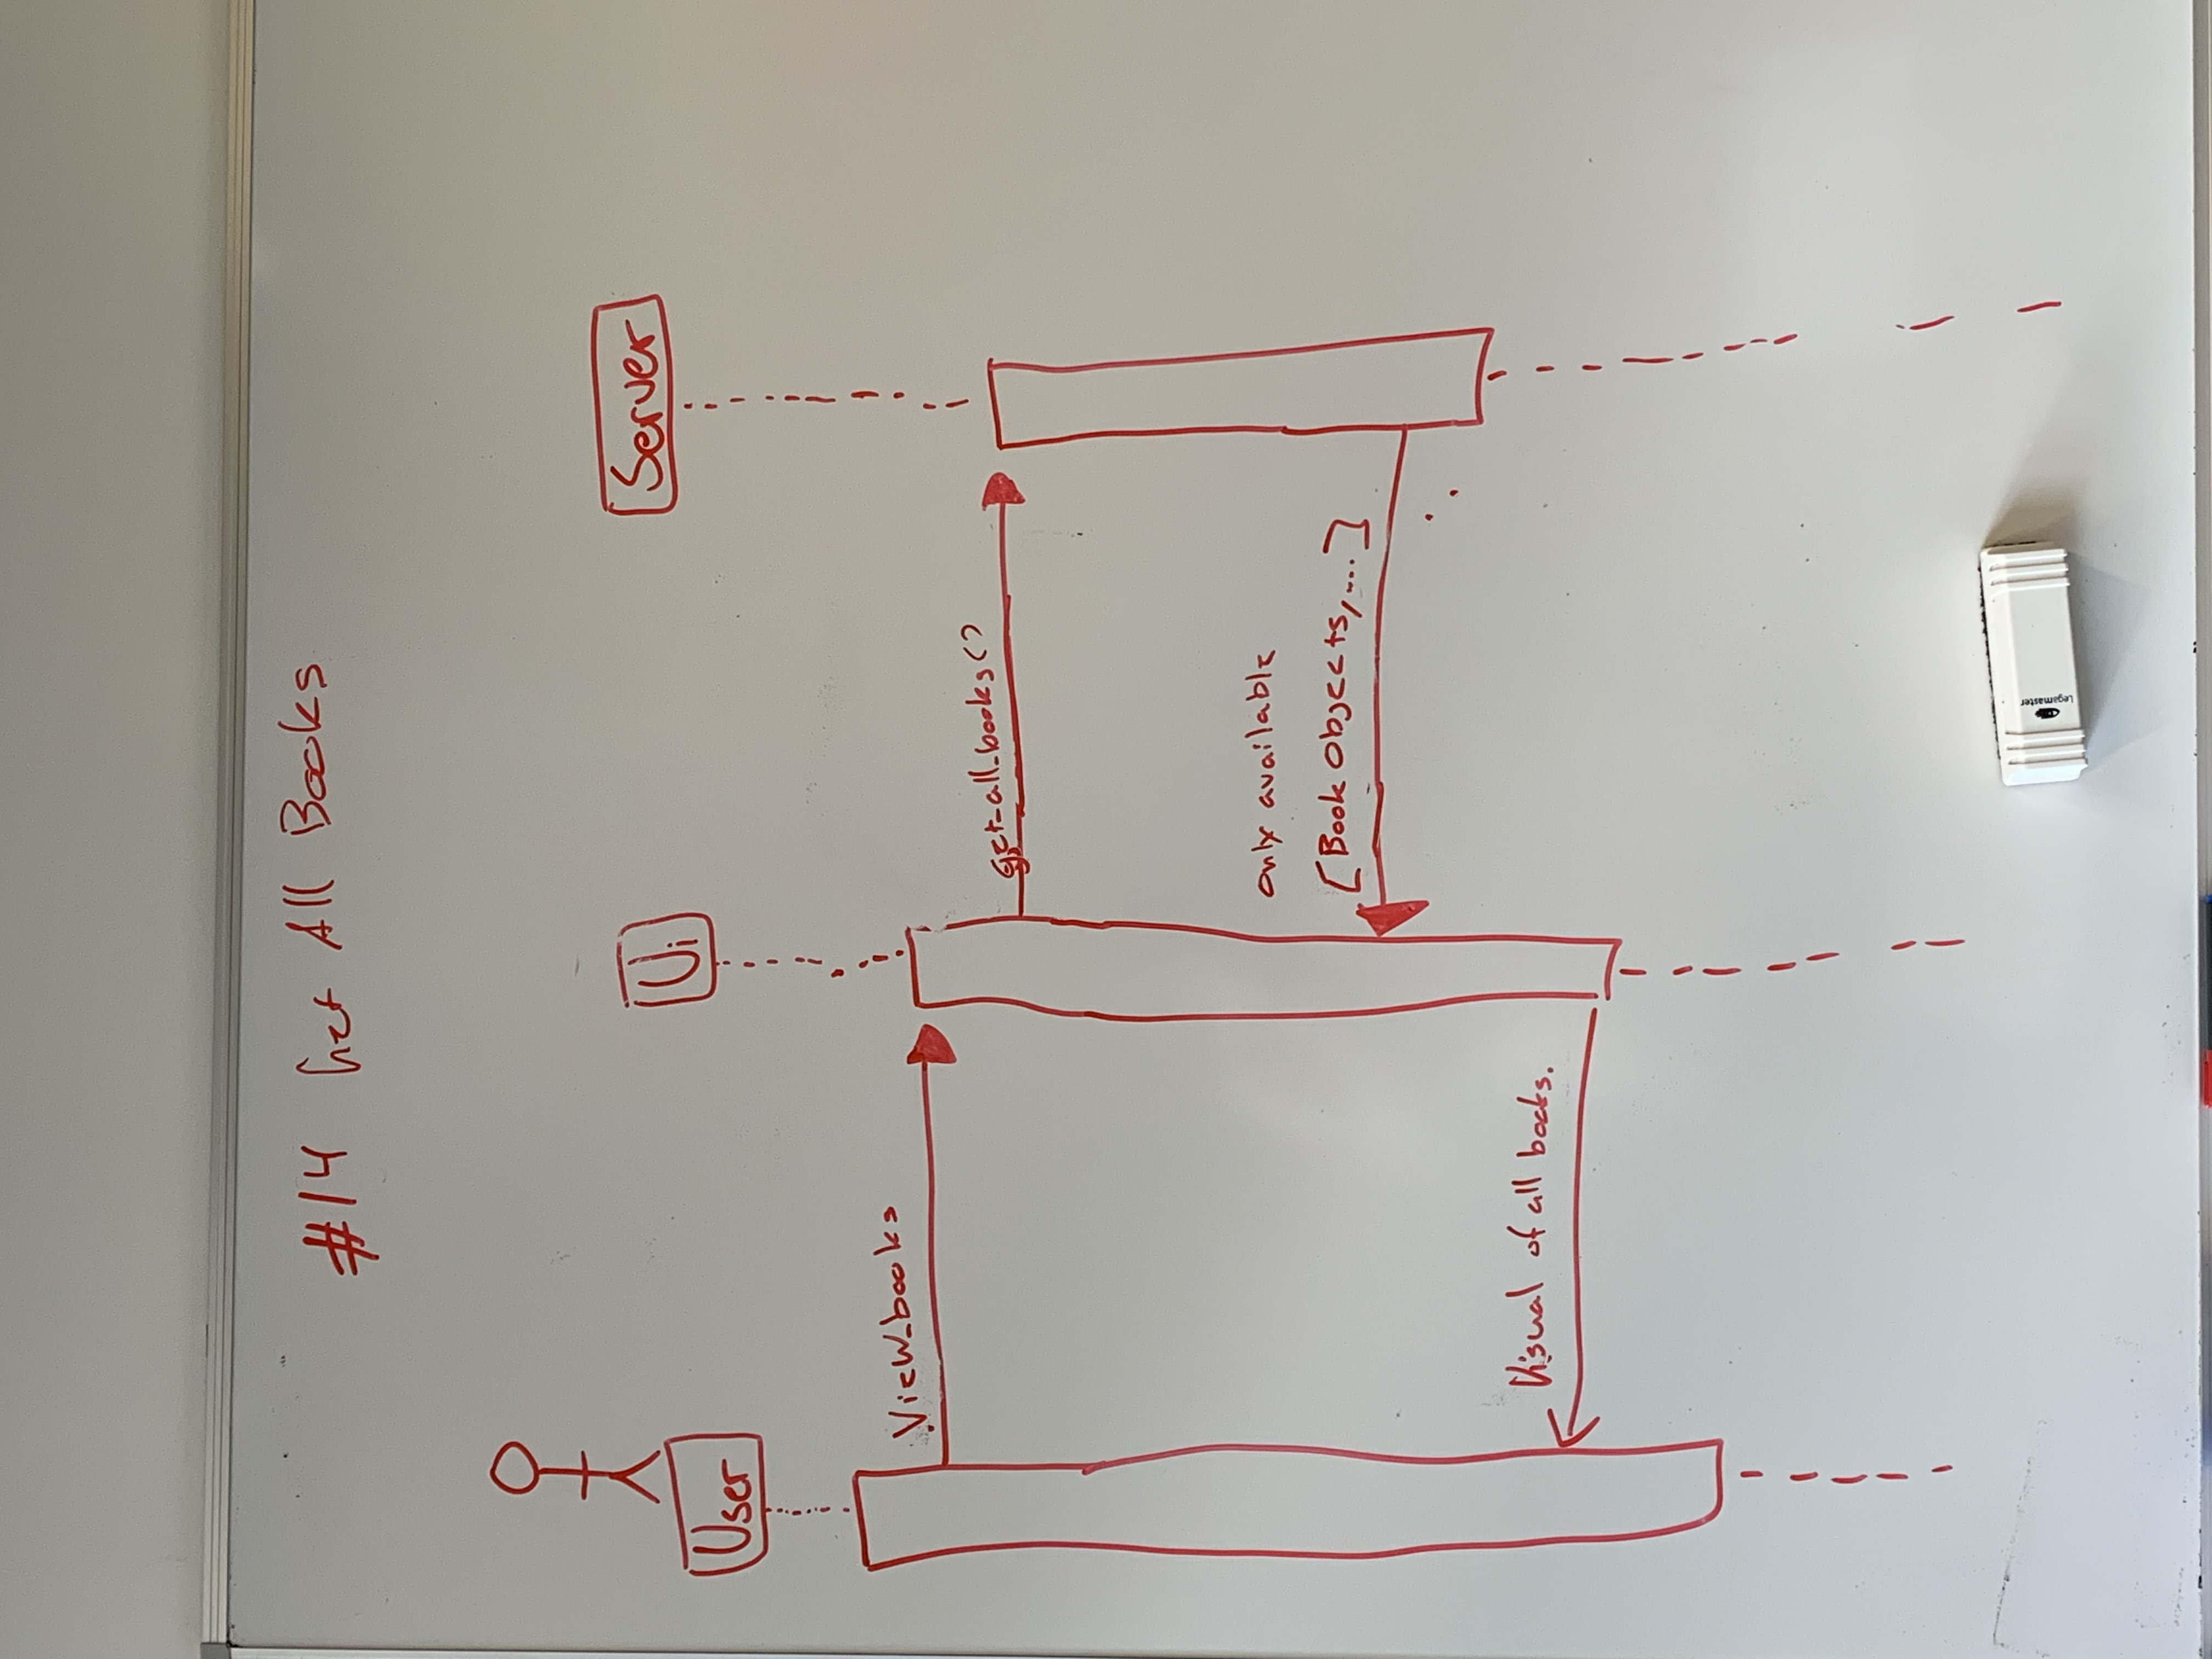 #14 Get All Books
User
Ui
Server
View_books
get_all_books()
only available
[Book Objects,....]
Visual of all books.
Legamaster